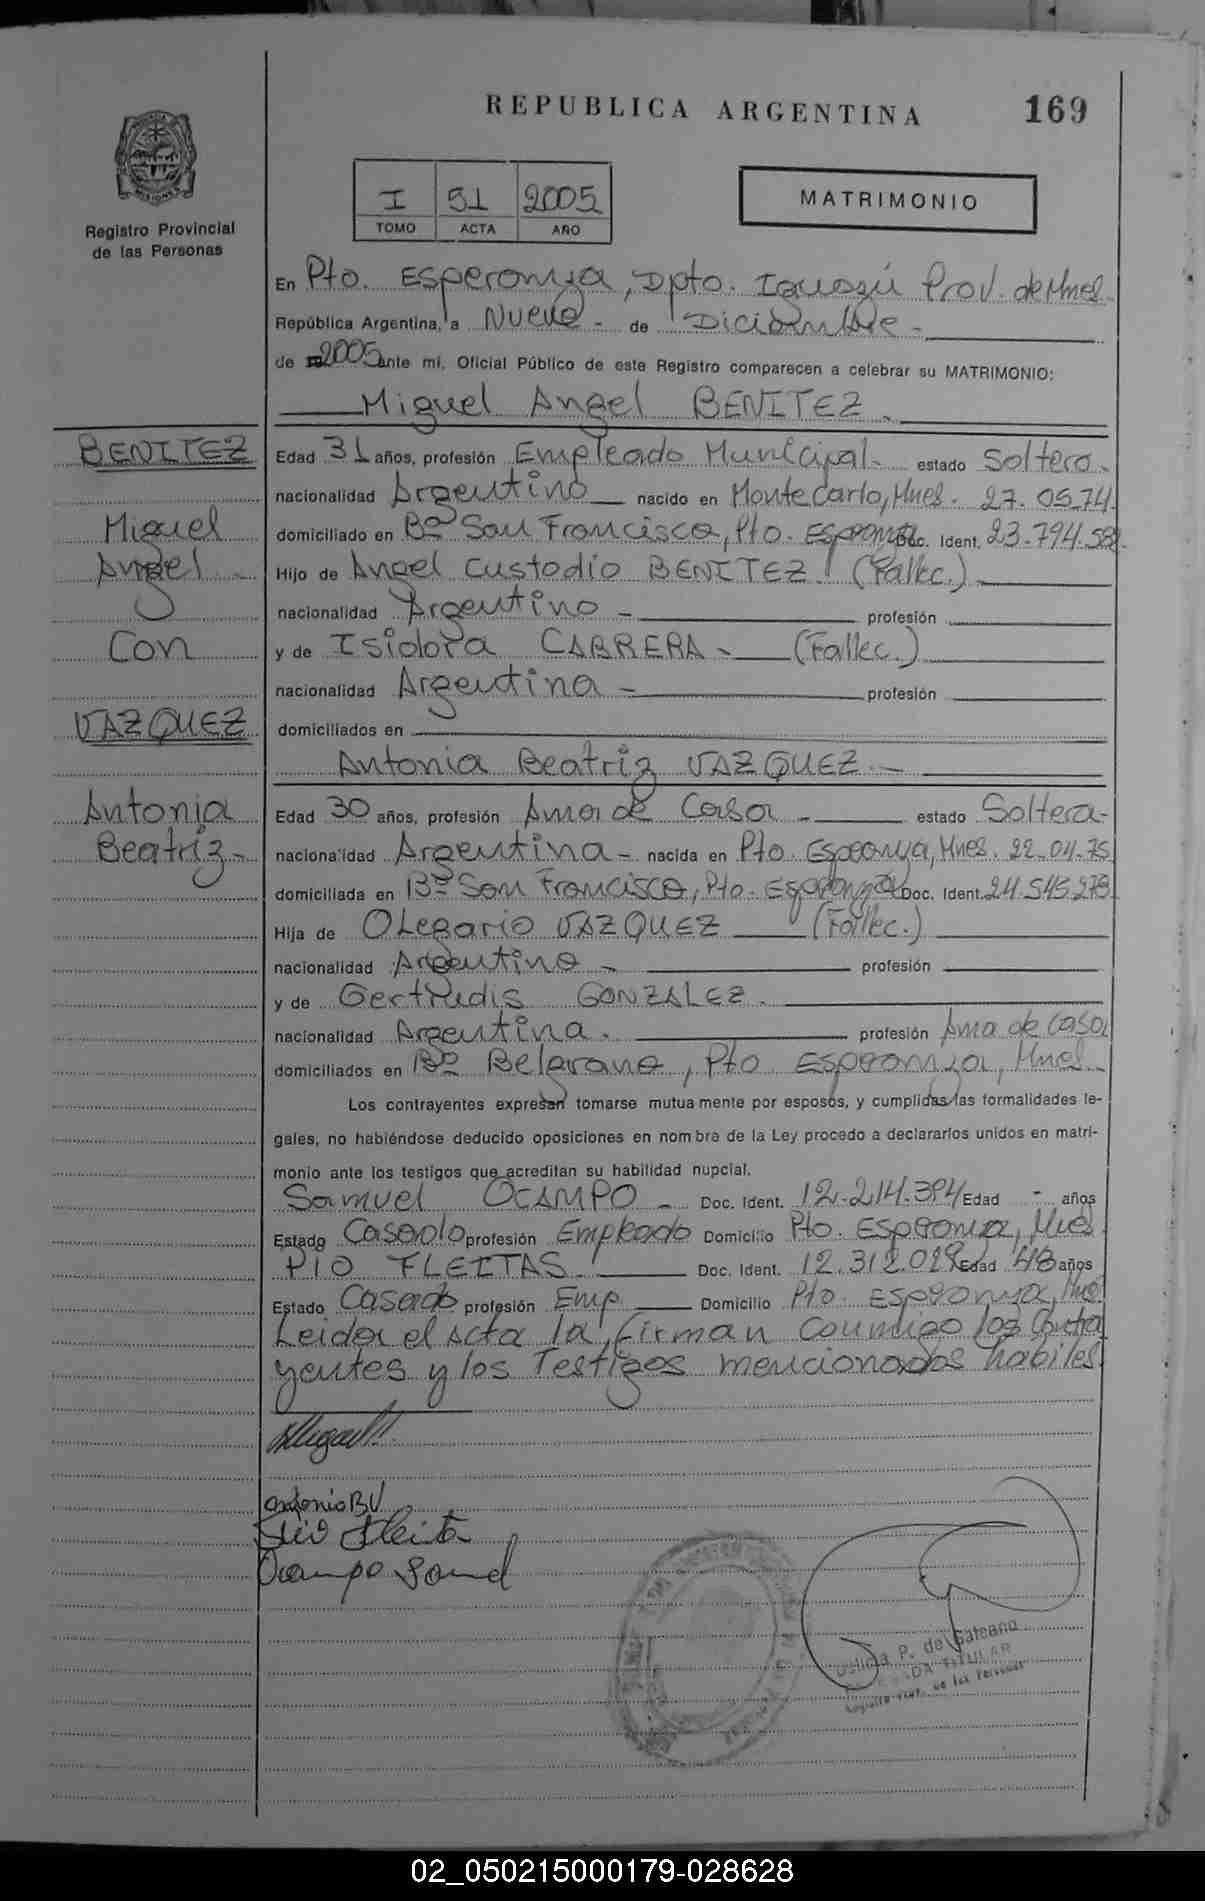 REPUBLICA ARGENTINA 169
MISIONES
Registro Provincial
de las Personas
I 51 2005
TOMO ACTA AÑO
MATRIMONIO
En Pto. Esperanza, Dpto. Iguazú Prov. de Mnes.
República Argentina, a Nueve - de Diciembre -
de 2005 ante mi, Oficial Público de este Registro comparecen a celebrar su MATRIMONIO:
Miguel Angel BENITEZ.
BENITEZ
Miguel
Angel -
Con
VAZQUEZ
Antonia
Beatriz -
Edad 31 años, profesión Empleado Municipal - estado Soltero -
nacionalidad Argentino nacido en Monte Carlo, Mnes. 27.05.74.
domiciliado en Bº San Francisco, Pto. Esperanza Doc. Ident. 23.794.582.
Hijo de Angel Custodio BENITEZ (Fallec.)
nacionalidad Argentino - profesión
y de Isidora CABRERA - (Fallec.)
nacionalidad Argentina - profesión
domiciliados en
Antonia Beatriz VAZQUEZ. -
Edad 30 años, profesión Ama de Casa - estado Soltera -
nacionalidad Argentina - nacida en Pto. Esperanza, Mnes. 22-04-75
domiciliada en Bº San Francisco, Pto. Esperanza Doc. Ident. 24.543.278
Hija de Olegario VAZQUEZ (Fallec.)
nacionalidad Argentino - profesión
y de Gertrudis GONZALEZ.
nacionalidad Argentina. profesión Ama de Casa
domiciliados en Bº Belgrano, Pto Esperanza, Mnes.
Los contrayentes expresan tomarse mutuamente por esposos, y cumplidas las formalidades le-
gales, no habiéndose deducido oposiciones en nombre de la Ley procedo a declararlos unidos en matri-
monio ante los testigos que acreditan su habilidad nupcial.
Samuel OCAMPO - Doc. Ident. 12.214.394 Edad - años
Estado Casado profesión Empleado Domicilio Pto. Esperanza, Mnes
PIO FLEITAS. Doc. Ident. 12.312.029 Edad 48 años
Estado Casado profesión Emp. Domicilio Pto. Esperanza, Mnes
Leida el Acta la firman conmigo los Contra
yentes y los Testigos mencionados habiles
Antonia B V
Pio Fleita
Ocampo Samuel
P. de Galeano
TITULAR
de las Personas
02_050215000179-028628